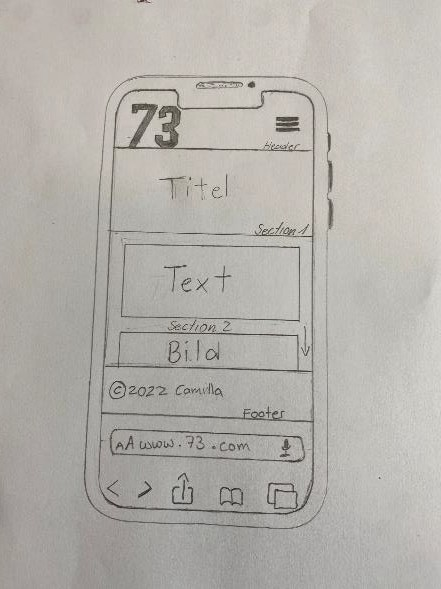 73
Header
Titel
Section 1
Text
Section 2
Bild
©2022 Camilla
Footer
AA www.73.com